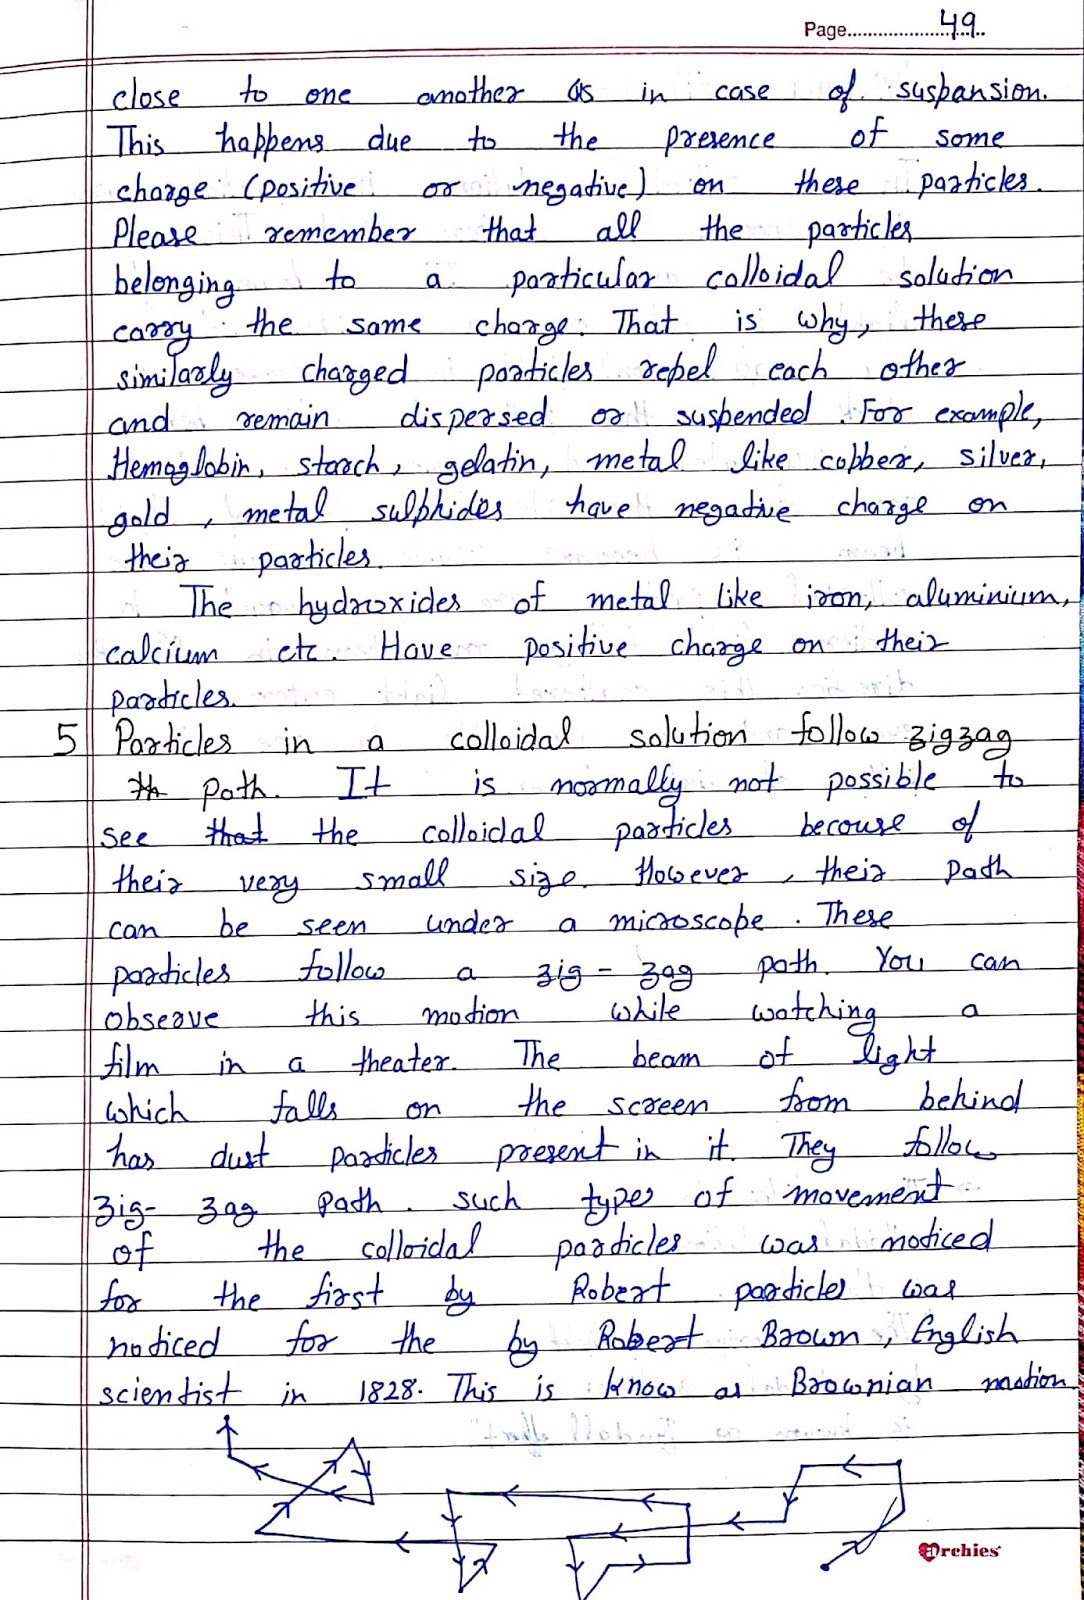 Page 49
close to one another as in case of suspansion.
This happens due to the presence of some
charge (positive or negative) on these particles.
Please remember that all the particles
belonging to a particular colloidal solution
carry the same charge. That is why, these
similarly charged particles repel each other
and remain dispersed or suspended. For example,
Hemoglobin, starch, gelatin, metal like copper, silver,
gold, metal sulphides have negative charge on
their particles.
The hydroxides of metal like iron, aluminium,
calcium etc. Have positive charge on their
particles.
5 Particles in a colloidal solution follow zigzag
th path. It is normally not possible to
see that the colloidal particles becouse of
their very small size. However, their path
can be seen under a microscope. These
particles follow a zig-zag path. You can
observe this motion while watching a
film in a theater. The beam of light
which falls on the screen from behind
has dust particles present in it. They follow
zig-zag path. such types of movement
of the colloidal particles was noticed
for the first by Robert particles was
noticed for the by Robert Brown, English
scientist in 1828. This is know as Brownian motion
Archies